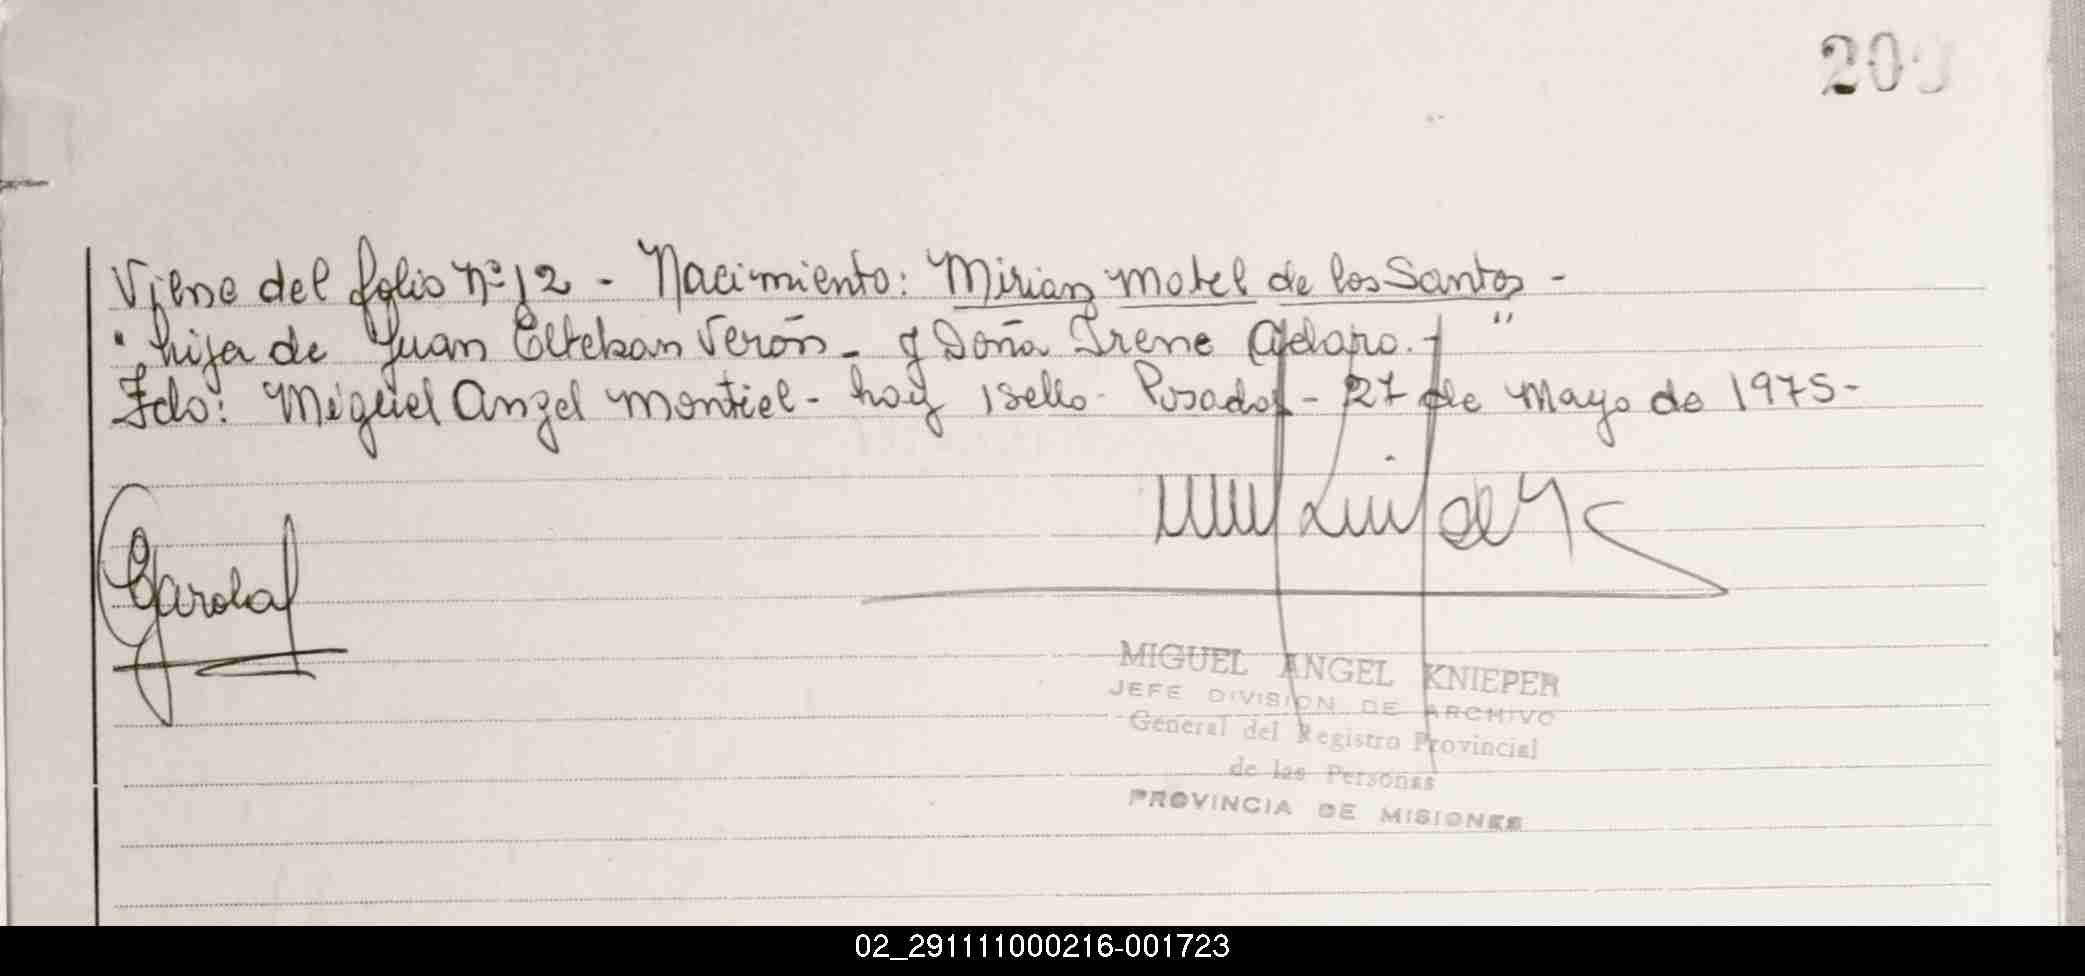 200
Viene del folio nº 12 - Nacimiento: Mirian Mabel de los Santos -
" hija de Juan Esteban Verón - y Doña Irene "
Fdo: Miguel Angel Montiel - hay 1 sello - Posadas - 27 de Mayo de 1975 -
MIGUEL ANGEL KNIEPER
JEFE DIVISION DE ARCHIVO
General del Registro Provincial
de las Personas
PROVINCIA DE MISIONES
02_291111000216-001723